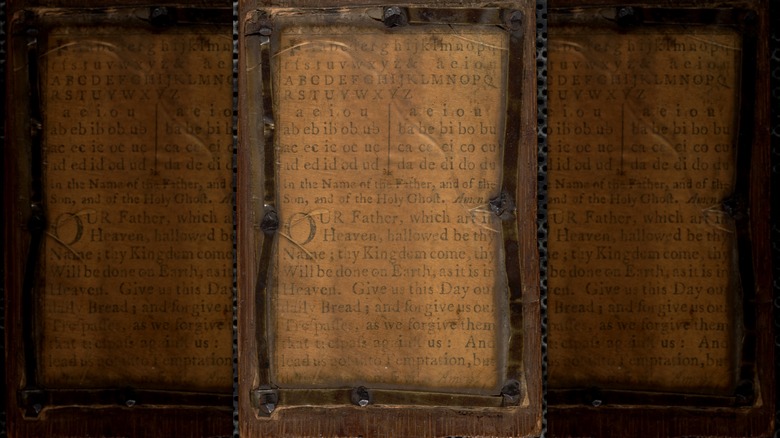 g h i j k l m n o p q
r ſ s t u v w x y z & a e i o u
A B C D E F G H I J K L M N O P Q
R S T U V W X Y Z
a e i o u | a e i o u
ab eb ib ob ub | ba be bi bo bu
ac ec ic oc uc | ca ce ci co cu
ad ed id od ud | da de di do du
In the Name of the Father, and of the
Son, and of the Holy Ghoſt. Amen.
OUR Father, which art in
Heaven, hallowed be thy
Name; thy Kingdom come, thy
Will be done on Earth, as it is in
Heaven. Give us this Day our
daily Bread; and forgive us our
Treſpaſſes, as we forgive them
that treſpaſs againſt us: And
lead us not into Temptation, but